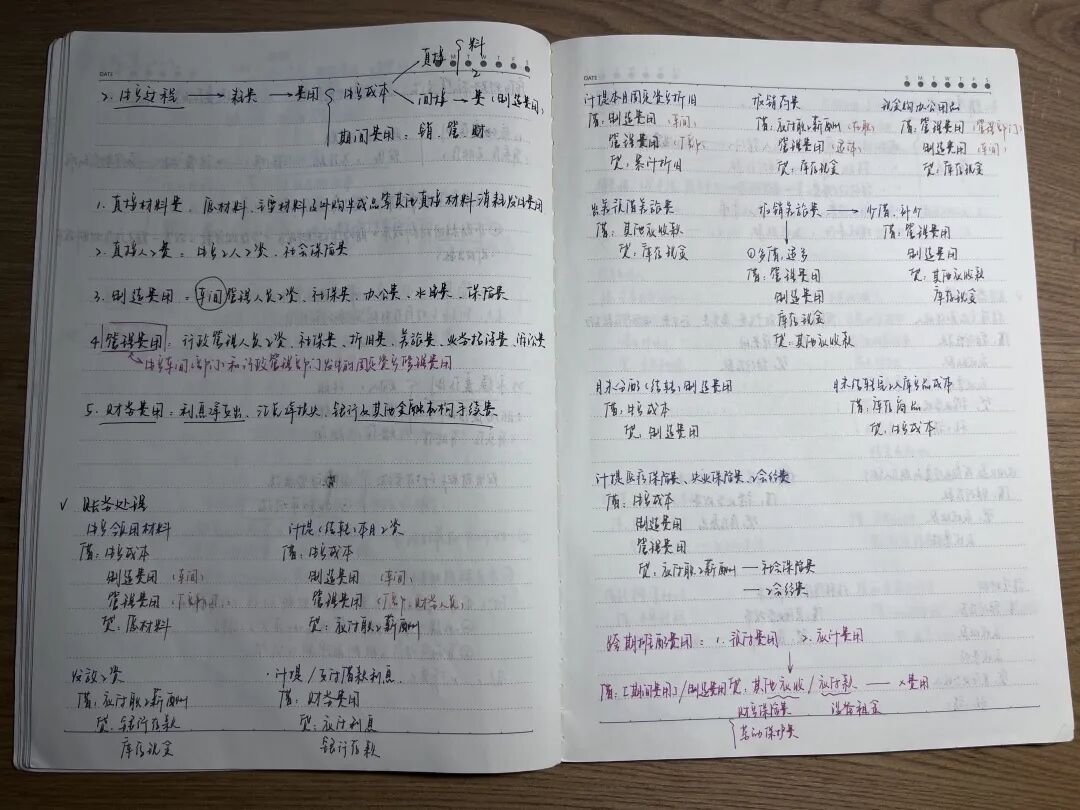 DATE
直接 { 料
工
2. 生产过程 → 耗费 → 费用 { 生产成本
间接 → 费（制造费用）
期间费用：销、管、财
1. 直接材料费：原材料、主要材料及外购半成品等其他直接材料消耗发生费用
2. 直接人工费：生产工人工资、社会保险费
3. 制造费用：车间管理人员工资、社保费、办公费、水电费、保险费
4. 管理费用：行政管理人员工资、社保费、折旧费、差旅费、业务招待费、诉讼费
生产车间部门和行政管理部门发生的固定资产修理费用
5. 财务费用：利息净支出、汇兑净损失、银行及其他金融机构手续费
√ 账务处理
生产领用材料
借：生产成本
制造费用（车间）
管理费用
贷：原材料
计提（结转）本月工资
借：生产成本
制造费用（车间）
管理费用（厂部、财务人员）
贷：应付职工薪酬
发放工资
借：应付职工薪酬
贷：银行存款
库存现金
计提/支付借款利息
借：财务费用
贷：应付利息
银行存款
DATE
S M T W T F S
计提本月固定资产折旧
借：制造费用（车间）
管理费用（厂部）
贷：累计折旧
报销药费
借：应付职工薪酬（在职）
管理费用（退休）
贷：库存现金
现金购办公用品
借：管理费用（管理部门）
制造费用（车间）
贷：库存现金
出差预借差旅费
借：其他应收款
贷：库存现金
报销差旅费 → 少借，补个
↓
①多借，退多
借：管理费用
制造费用
库存现金
贷：其他应收款
借：管理费用
制造费用
贷：其他应收款
库存现金
月末分配（结转）制造费用
借：生产成本
贷：制造费用
月末结转完工入库产品成本
借：库存商品
贷：生产成本
计提医疗保险费、失业保险费、工会经费
借：生产成本
制造费用
管理费用
贷：应付职工薪酬 — 社会保险费
— 工会经费
跨期摊配费用：1. 预付费用 2. 应计费用
↓
借：[期间费用]/制造费用 贷：其他应收/应付款 — ×费用
财产保险费 设备租金
劳动保护费